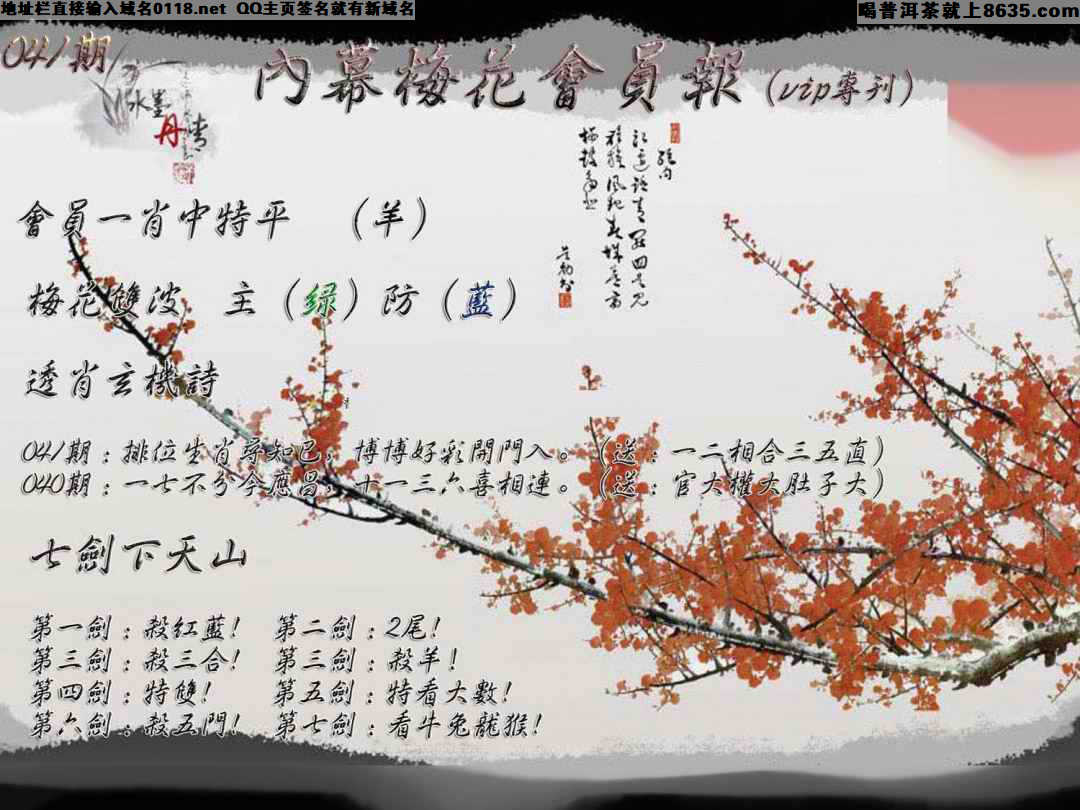 地址栏直接输入域名0118.net QQ主页签名就有新域名
喝普洱茶就上8635.com
041期
內幕梅花會員報(vip專刊)
水墨
丹青
會員一肖中特平 (羊)
梅花雙波 主(绿)防(藍)
透肖玄機詩
041期:排位生肖尊知己,博博好彩開門入。(送:一二相合三五直)
040期:一七不分今應昌,十一三六喜相連。(送:官大權大肚子大)
七劍下天山
第一劍:殺紅藍! 第二劍:2尾!
第三劍:殺三合! 第三劍:殺羊!
第四劍:特雙! 第五劍:特看大數!
第六劍:殺五門! 第七劍:看牛兔龍猴!